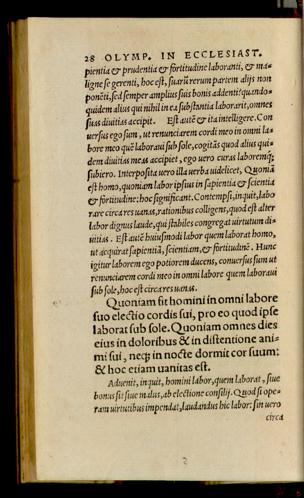 28 OLYMP. IN ECCLESIAST.
pientia & prudentia & fortitudine laboranti, & ma-
ligne se gerenti, hoc est, suarū rerum partem alijs non
ponēti, sed semper amplius suis bonis addenti: quando-
quidem alius qui nihil in ea substantia laborarit, omnes
suas diuitias accipit. Est autē & ita intelligere. Con
uersus ego sum, ut renunciarem cordi meo in omni la-
bore meo quē laboraui sub sole, cogitās quod alius qui-
dem diuitias meas accipiet, ego uero curas laboremq;
subiero. Interposita uero illa uerba uidelicet, Quoniā
est homo, quoniam labor ipsius in sapientia & scientia
& fortitudine: hoc significant. Contempsit, inquit, labo
rare circa res uanas, rationibus colligens, quod est alter
labor dignus laude, qui stabiles congregat uirtutum di-
uitias. Est autē huiusmodi labor quem laborat homo,
ut acquirat sapientiā, scientiam, & fortitudinē. Hunc
igitur laborem ego potiorem ducens, conuersus sum ut
renunciarem cordi meo in omni labore quem laboraui
sub sole, hoc est circa res uanas.
Quoniam fit homini in omni labore
suo electio cordis sui, pro eo quod ipse
laborat sub sole. Quoniam omnes dies
eius in doloribus & in distentione ani-
mi sui, neq; in nocte dormit cor suum:
& hoc etiam uanitas est.
Aduenit, inquit, homini labor, quem laborat, siue
bonus sit siue malus, ab electione consilij. Quod si ope-
ram uirtutibus impendat, laudandus hic labor: sin uero
circa